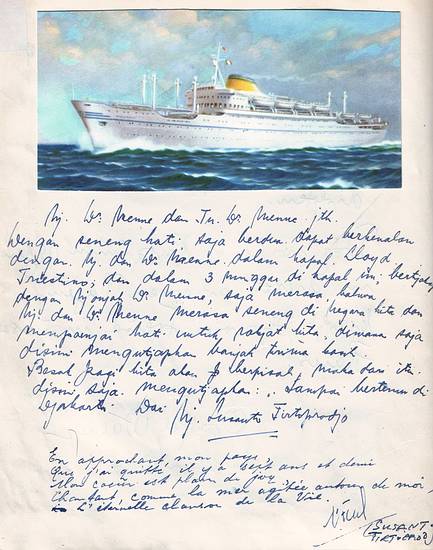 Nj. Dr. Menne dan Tn. Dr. Menne jth.
Dengan seneng hati saja berdua dapat berkenalan
dengan Nj dan Dr. Menne dalam kapal Lloyd
Triestino; dan dalam 3 minggu di kapal ini
dengan Njonjah Dr. Menne, saja merasa, bahwa
Nj. dan Dr. Menne merasa seneng di negara kita dan
mempunjai hati untuk rakjat kita, dimana saja
disini mengutjapkan banjak trima kasi.
Besok pagi kita akan berpisah, maka dari itu
disini saja mengutjapkan: "Sampai bertemu di
Djakarta" Dari Nj. Susanto Tirtoprodjo
En approchant mon pays,
Que j'ai quitté il y a sept ans et demi
Mon coeur est plein de joy
Chantant, comme la mer agitée autour de moi,
L'éternelle chanson de la Vie.
(SUSANTO
TIRTOPRODJO)